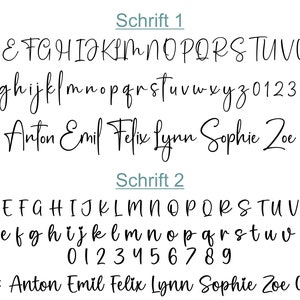 Schrift 1
E F G H I J K L M N O P Q R S T U V
g h i j k l m n o p q r s t u v w x y z 0 1 2 3
Anton Emil Felix Lynn Sophie Zoe
Schrift 2
E F G H I J K L M N O P Q R S T U V
e f g h i j k l m n o p q r s t u v
0 1 2 3 4 5 6 7 8 9
Anton Emil Felix Lynn Sophie Zoe